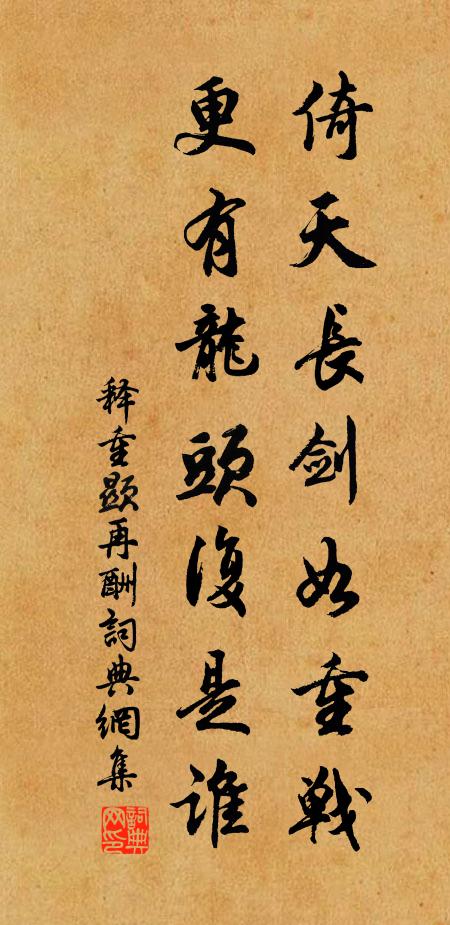 倚天長劍如重戰
更有龍頭復是誰
释重顯再酬詞典網集
詞典網印